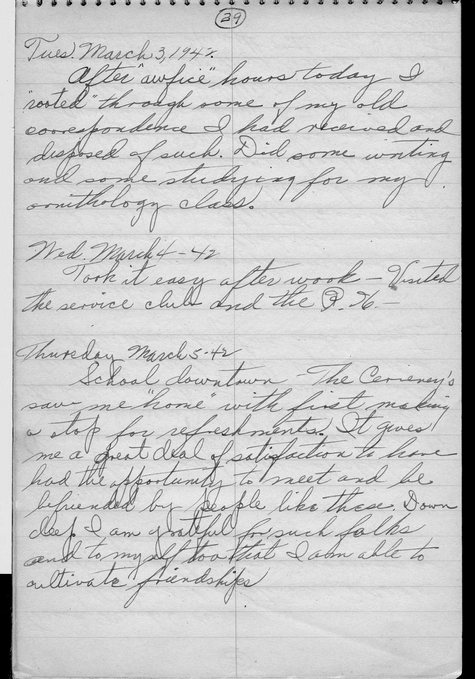 29
Tues. March 3, 1942.
After "awfice" hours today I
"rooted" through some of my old
correspondence I had received and
disposed of such. Did some writing
and some studying for my
ornithology class.
Wed. March 4 - 42
Took it easy after work - Visited
the service club and the P. X. -
Thursday March 5-42
School downtown - The
saw me "home" with first making
a stop for refreshments. It gives
me a great deal of satisfaction to have
had the opportunity to meet and be
befriended by people like these. Down
deep I am grateful for such folks
and to myself too that I am able to
cultivate friendships